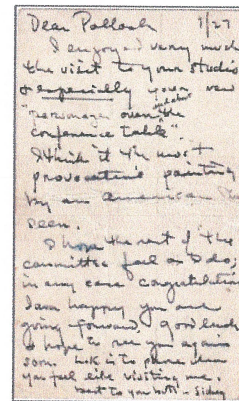 Dear Pollock 7/27
I enjoyed very much
the visit to your studio
& especially your new
"personages over the
conference table".
I think it the most
provocative painting
by an American I've
seen.
I hope the rest of the
committee feel as I do;
in any case congratulations
I am happy you are
going forward. Good luck
& hope to see you again
soon. to phone when
you feel like visiting me.
Best to you both - Sidney